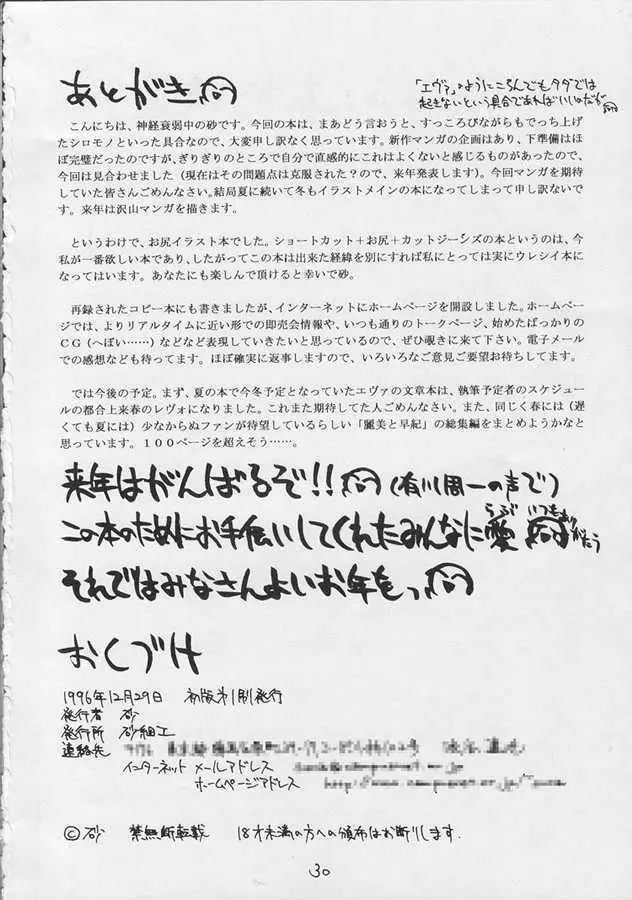 あとがき
「エヴァ」のようにころんでもタダでは
起きないという具合であればいいのだが
こんにちは、神経衰弱中の砂です。今回の本は、まあどう言おうと、すっころびながらもでっち上げ
たシロモノといった具合なので、大変申し訳なく思っています。新作マンガの企画はあり、下準備はほ
ぼ完璧だったのですが、ぎりぎりのところで自分で直感的にこれはよくないと感じるものがあったので、
今回は見合わせました（現在はその問題点は克服された？ので、来年発表します）。今回マンガを期待
していた皆さんごめんなさい。結局夏に続いて冬もイラストメインの本になってしまって申し訳ないで
す。来年は沢山マンガを描きます。
というわけで、お尻イラスト本でした。ショートカット＋お尻＋カットジーンズの本というのは、今
私が一番欲しい本であり、したがってこの本は出来た経緯を別にすれば私にとっては実にウレシイ本に
なってはいます。あなたにも楽しんで頂けると幸いで砂。
再録されたコピー本にも書きましたが、インターネットにホームページを開設しました。ホームペー
ジでは、よりリアルタイムに近い形での即売会情報や、いつも通りのトークページ、始めたばっかりの
ＣＧ（へぼい……）などなど表現していきたいと思っているので、ぜひ覗きに来て下さい。電子メール
での感想なども待ってます。ほぼ確実に返事しますので、いろいろなご意見ご要望お待ちしてます。
では今後の予定。まず、夏の本で今冬予定となっていたエヴァの文章本は、執筆予定者のスケジュー
ルの都合上来春のレヴォになりました。これまた期待してた人ごめんなさい。また、同じく春には（遅
くても夏には）少なからぬファンが待望しているらしい「麗美と早紀」の総集編をまとめようかなと
思っています。１００ページを超えそう……。
来年はがんばるぞ!! （有川周一の声で）
この本のためにお手伝いしてくれたみんなに愛 らぶ いつもありがたう
それではみなさんよいお年をっ
おくづけ
1996年12月29日 初版第1刷発行
発行者 砂
発行所 砂細工
連絡先
インターネット メールアドレス
ホームページアドレス
©砂 禁無断転載 18才未満の方への頒布はお断りします.
30